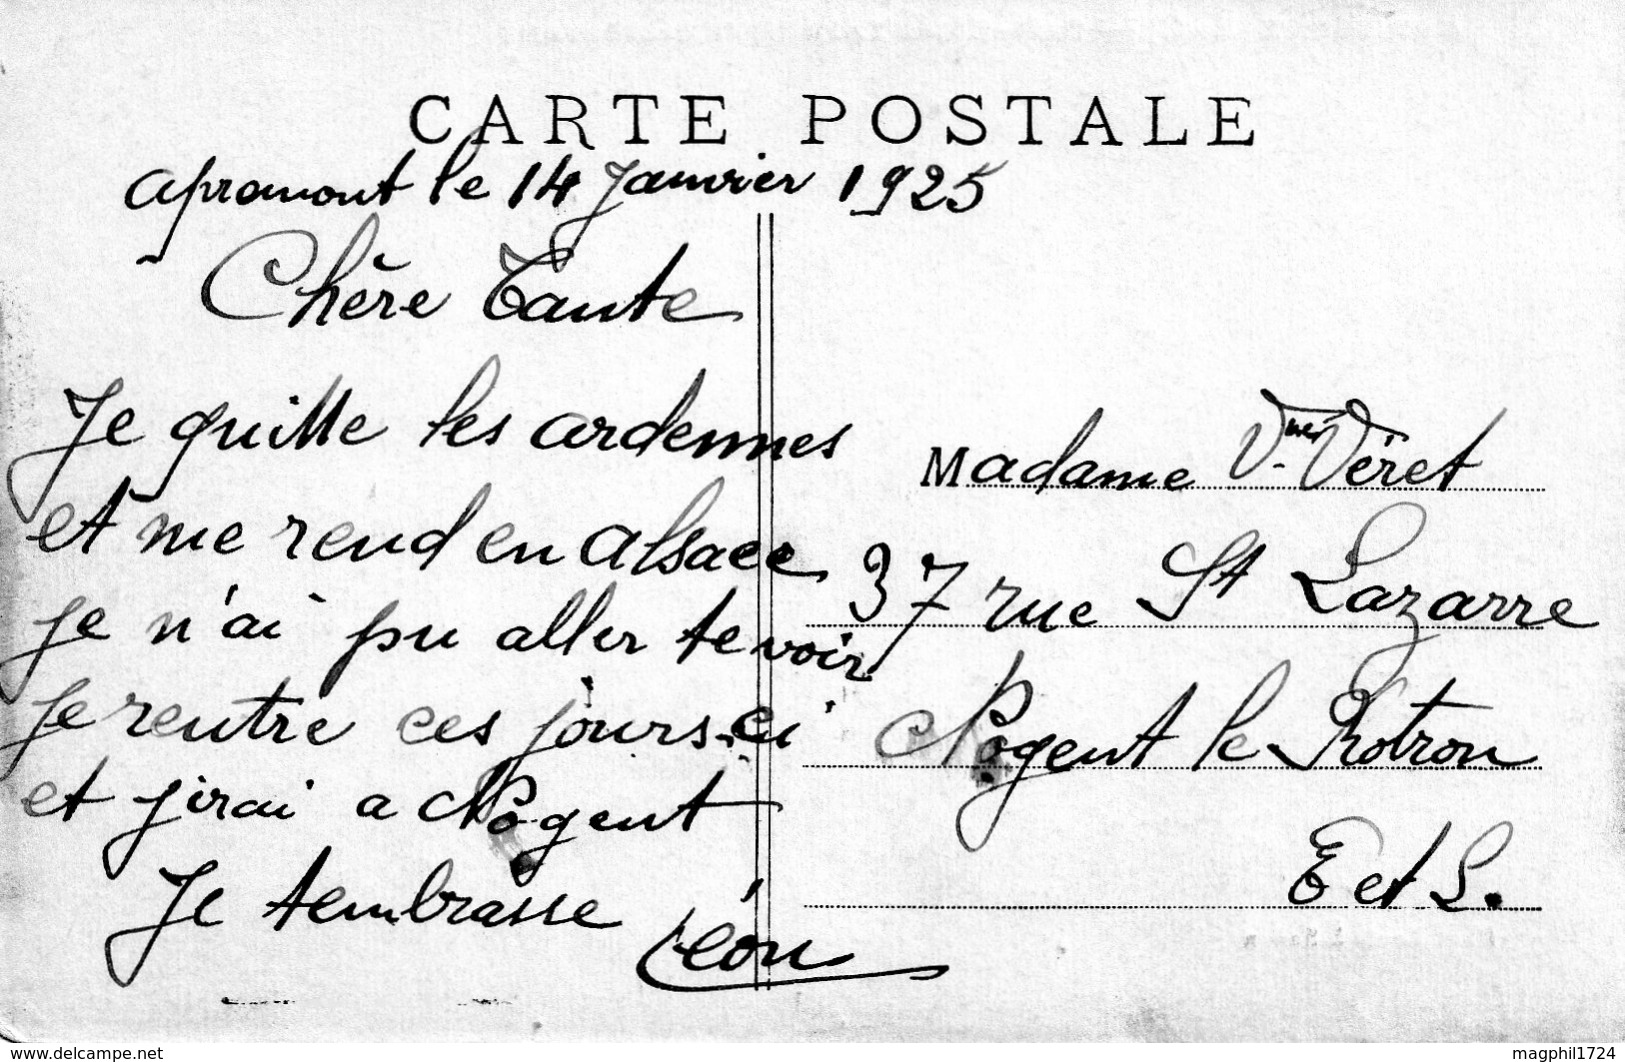 CARTE POSTALE
apremont le 14 Janvier 1925
Chère Tante
Je quitte les ardennes
et me rend en alsace
je n'ai pu aller te voir
je rentre ces jours-ci
et j'irai a Nogent
Je t'embrasse Léon
Madame Vve Véret
37 rue St Lazarre
Nogent le Rotrou
E et L.
www.delcampe.net
magphil1724